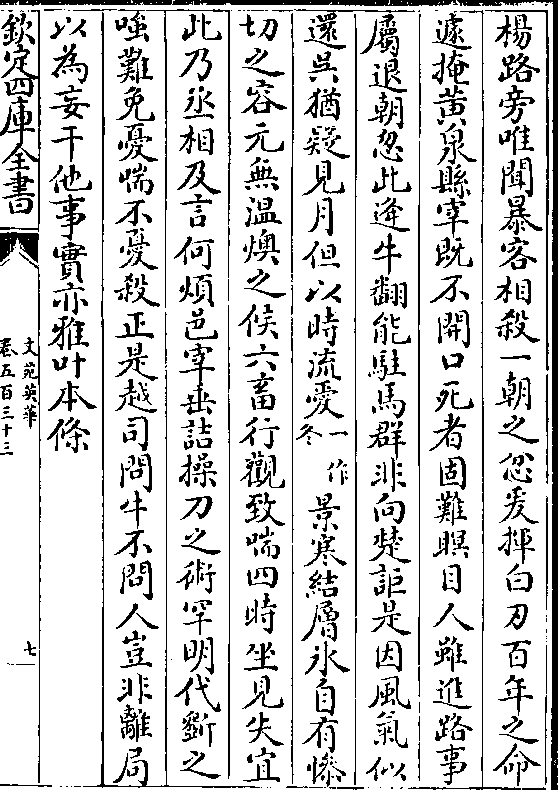 楊路旁唯聞暴客相殺一朝之忿爰揮白刃百年之命
遽掩黄泉縣宰既不開口死者固難瞑目人雖進路事
屬退朝忽此逢牛翻能駐馬群非向楚詎是因風氣似
還吳猶疑見月但以時流愛一作冬景寒結層氷自有慘
切之容元無溫燠之候六畜行觀致喘四時坐見失宜
此乃丞相及言何煩邑宰垂詰操刀之術罕明代斵之
嗤難免憂喘不憂殺正是越司問牛不問人豈非離局
以為妄干他事實亦雅叶本條
欽定四庫全書
文苑英華
卷五百三十三
七